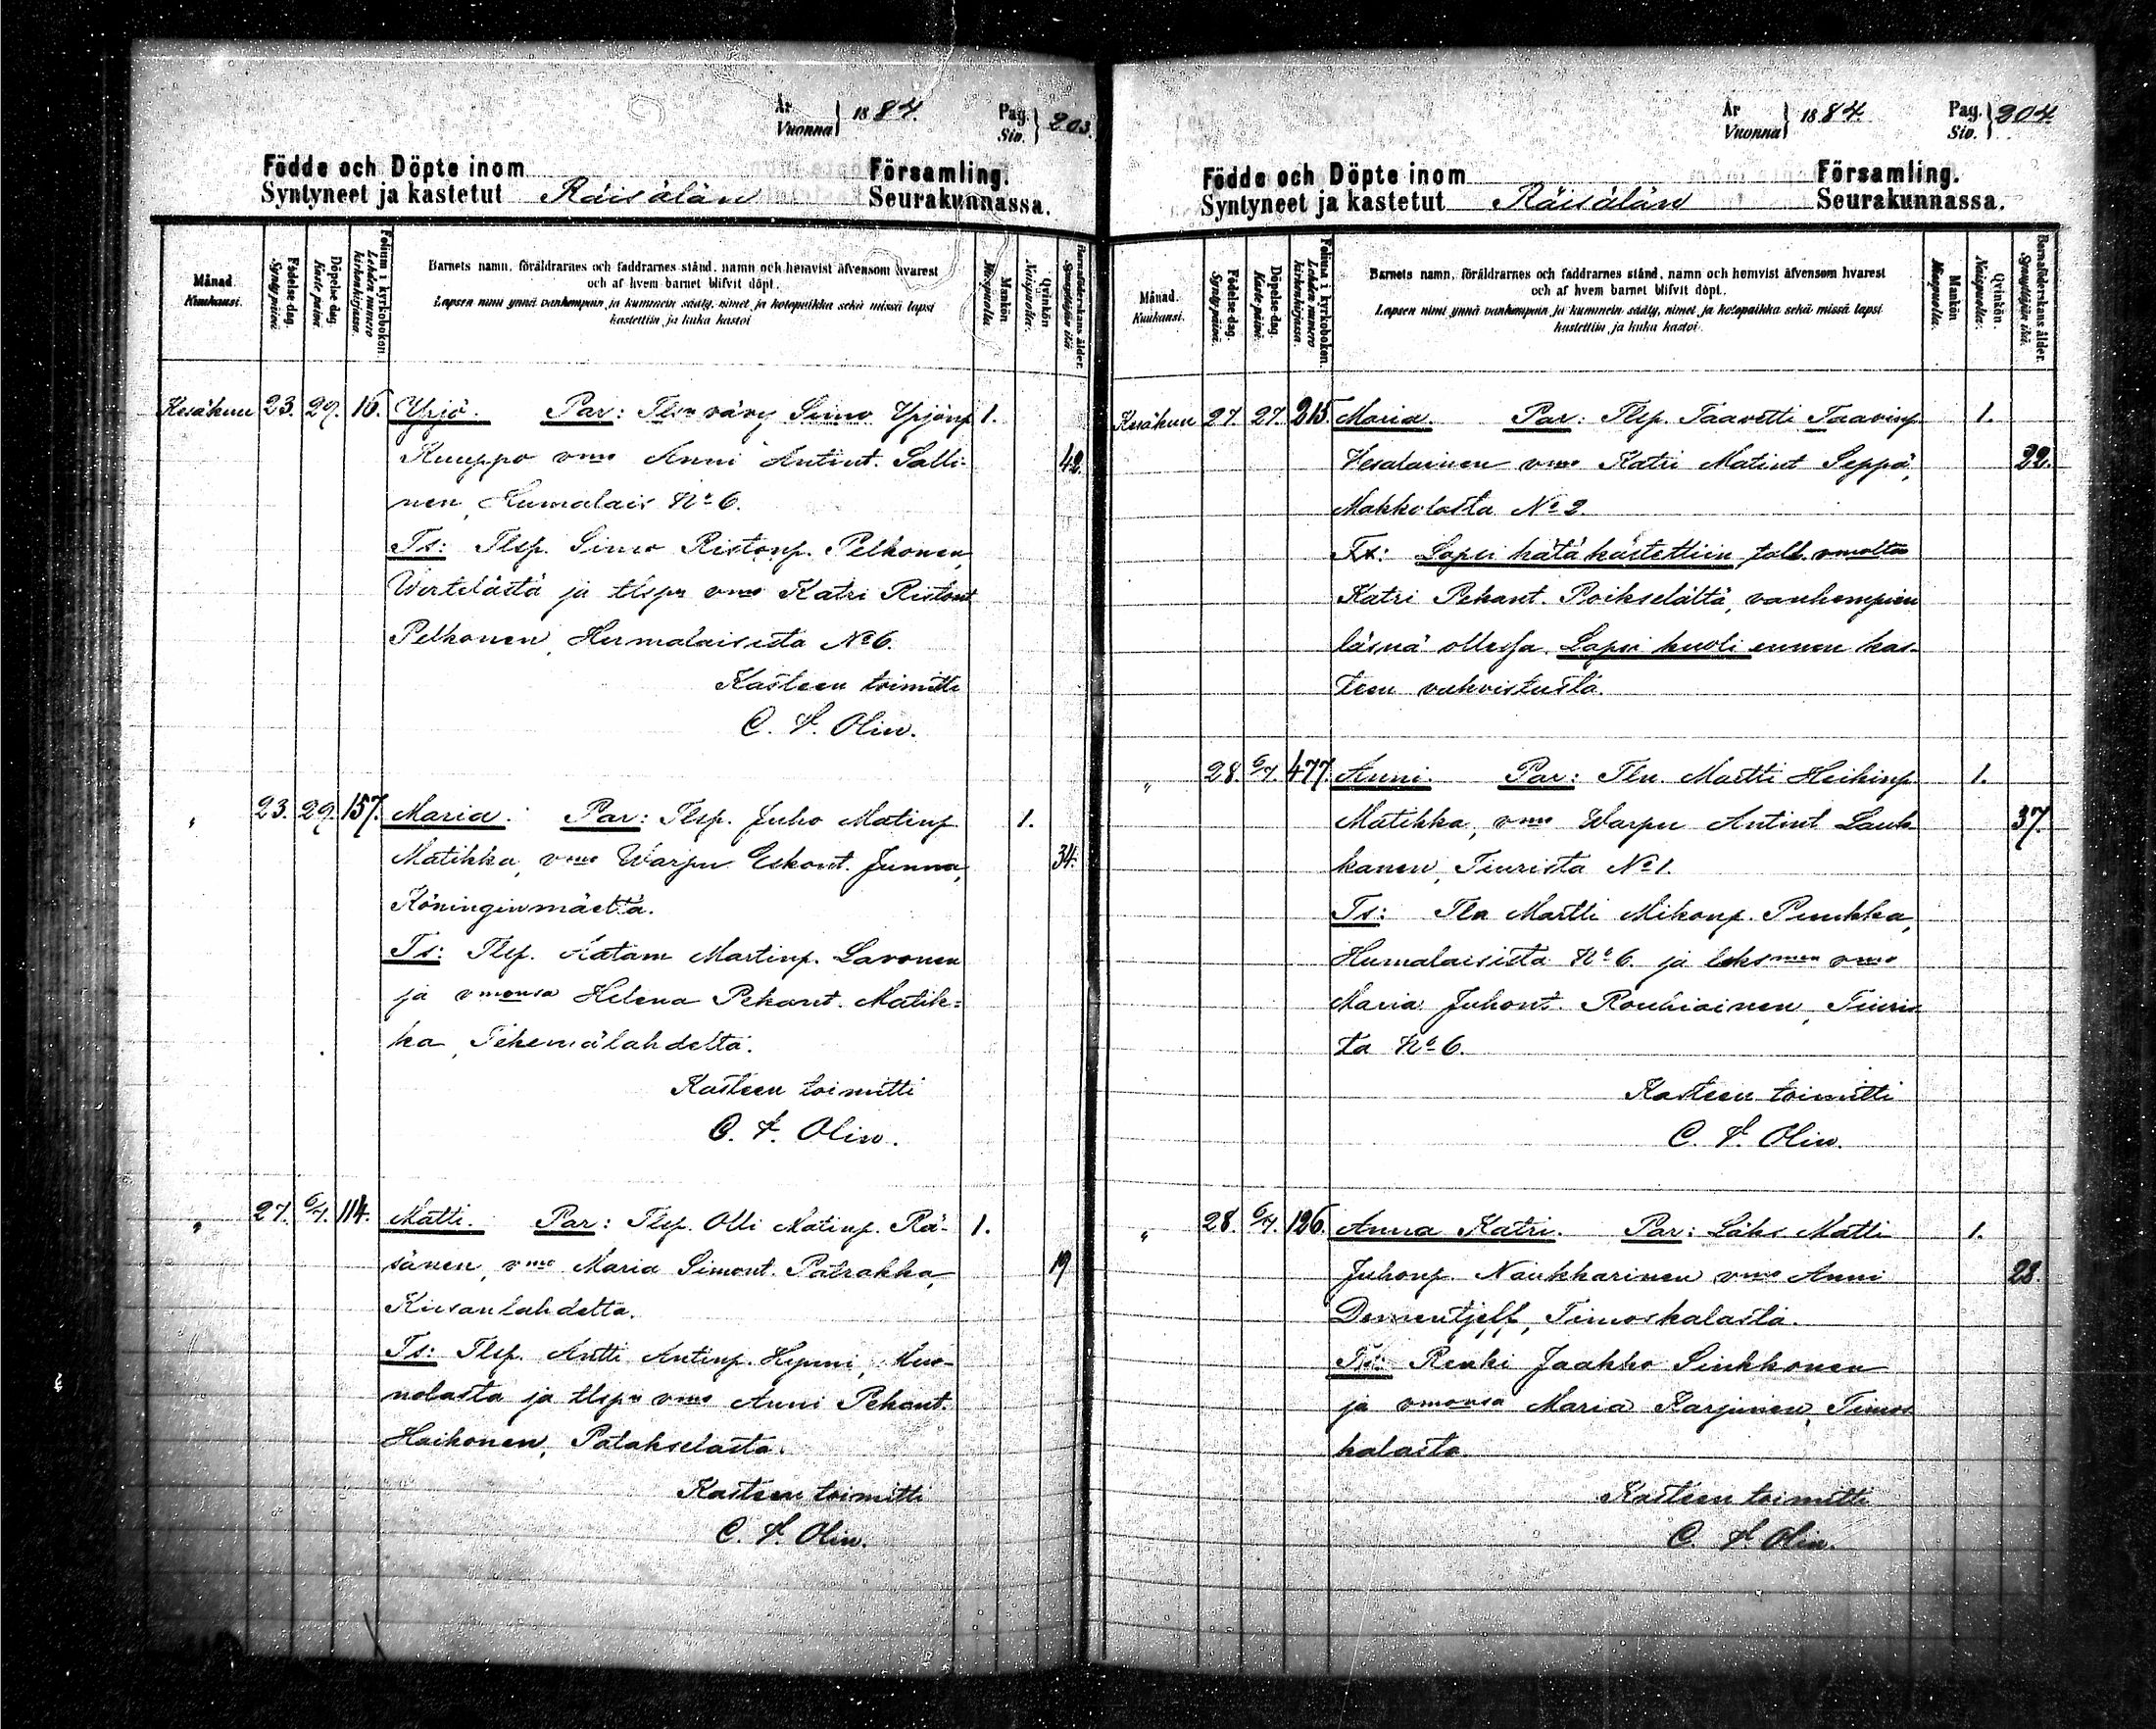 År
Vuonna } 1884.
Pag.
Siv. } 203.
Födde och Döpte inom Församling.
Syntyneet ja kastetut Räisälän Seurakunnassa.
Månad. Kuukausi.
Födelse-dag. Syntypäivä.
Döpelse-dag. Kastepäivä.
Folium i kyrkoboken. Lehden numero kirkonkirjassa.
Barnets namn, föräldrarnes och faddrarnes stånd, namn och hemvist äfvensom hvarest
och af hvem barnet blifvit döpt.
Lapsen nimi ynnä vanhempain ja kummein sääty, nimet ja kotopaikka sekä missä lapsi
kastettiin ja kuka kastoi
Mankön Miespuolia.
Qvinkön Naispuolia.
Barnaföderskans ålder. Synnyttäjän ikä.
Kesäkuu 23. 29. 16. Yrjö. Par: Tlsn vävy Simo Yrjönp 1.
Kuuppo vmo Anni Antint. Salli- 42.
nen, Humalais No 6.
Ts: Tlsp. Simo Ristonp. Pelkonen,
Wertelästä ja tlspn vmo Katri Ristont
Pelkonen, Humalaisista No 6.
Kasteen toimitti
C. F. Olin.
" 23. 29. 157. Maria. Par: Tlsp. Juho Matinp 1.
Matikka, vmo Warpu Eskont. Junna, 34.
Köninginmäeltä.
Ts: Tlsp. Aatam Martinp. Lavonen
ja vmonsa Helena Pekant. Matik=
ka, Tehemälahdelta.
Kasteen toimitti
C. F. Olin.
" 27. 6/7. 114. Matti. Par: Tlsp. Olli Matinp. Rä- 1.
sänen, vmo Maria Simont. Patrakka, 19
Kiisanlahdelta.
Ts: Tlsp. Antti Antinp. Hynni,
nolasta ja tlspn vmo Anni Pekant.
Haikonen, Palakselasta.
Kasteen toimitti
C. F. Olin.
År
Vuonna } 1884.
Pag.
Siv. } 204.
Födde och Döpte inom Församling.
Syntyneet ja kastetut Räisälän Seurakunnassa.
Månad. Kuukausi.
Födelse-dag. Syntypäivä.
Döpelse-dag. Kastepäivä.
Folium i kyrkoboken. Lehden numero kirkonkirjassa.
Barnets namn, föräldrarnes och faddrarnes stånd, namn och hemvist äfvensom hvarest
och af hvem barnet blifvit döpt.
Lapsen nimi ynnä vanhempain ja kummein sääty, nimet ja kotopaikka sekä missä lapsi
kastettiin ja kuka kastoi.
Mankön Miespuolia.
Qvinkön. Naispuolia.
Barnaföderskans ålder. Synnyttäjän ikä.
Kesäkuu 27. 27. 215. Maria. Par: Tlsp. Taavetti Taavinp 1.
Vesalainen vmo Katri Matint Seppä, 22.
Makkolasta No 2.
Ts: Lapsi hätäkastettiin tall. vmolta
Katri Pekant. Poikselältä, vanhempien
läsnä ollessa. Lapsi kuoli ennen kas-
teen vahvistusta.
" 28. 6/7. 477. Anni. Par: Tln. Martti Heikinp 1.
Matikka, vmo Warpu Antint Lauk- 37.
kanen, Tiurista No 1.
Ts: Tln Martti Mikonp. Puukka,
Humalaisista No 6. ja vmo
Maria Juhont. Rouhiainen, Tiuris
ta No 6.
Kasteen toimitti
C. F. Olin.
" 28. 6/7. 126. Anna Katri. Par: Läks Matti 1.
Juhonp. Naukkarinen vmo Anni 28.
Dementjeff, Timoskalasta.
Ts: Renki Jaakko Sinkkonen
ja vmonsa Maria Karjunen, Timos
kalasta.
Kasteen toimitti
C. F. Olin.